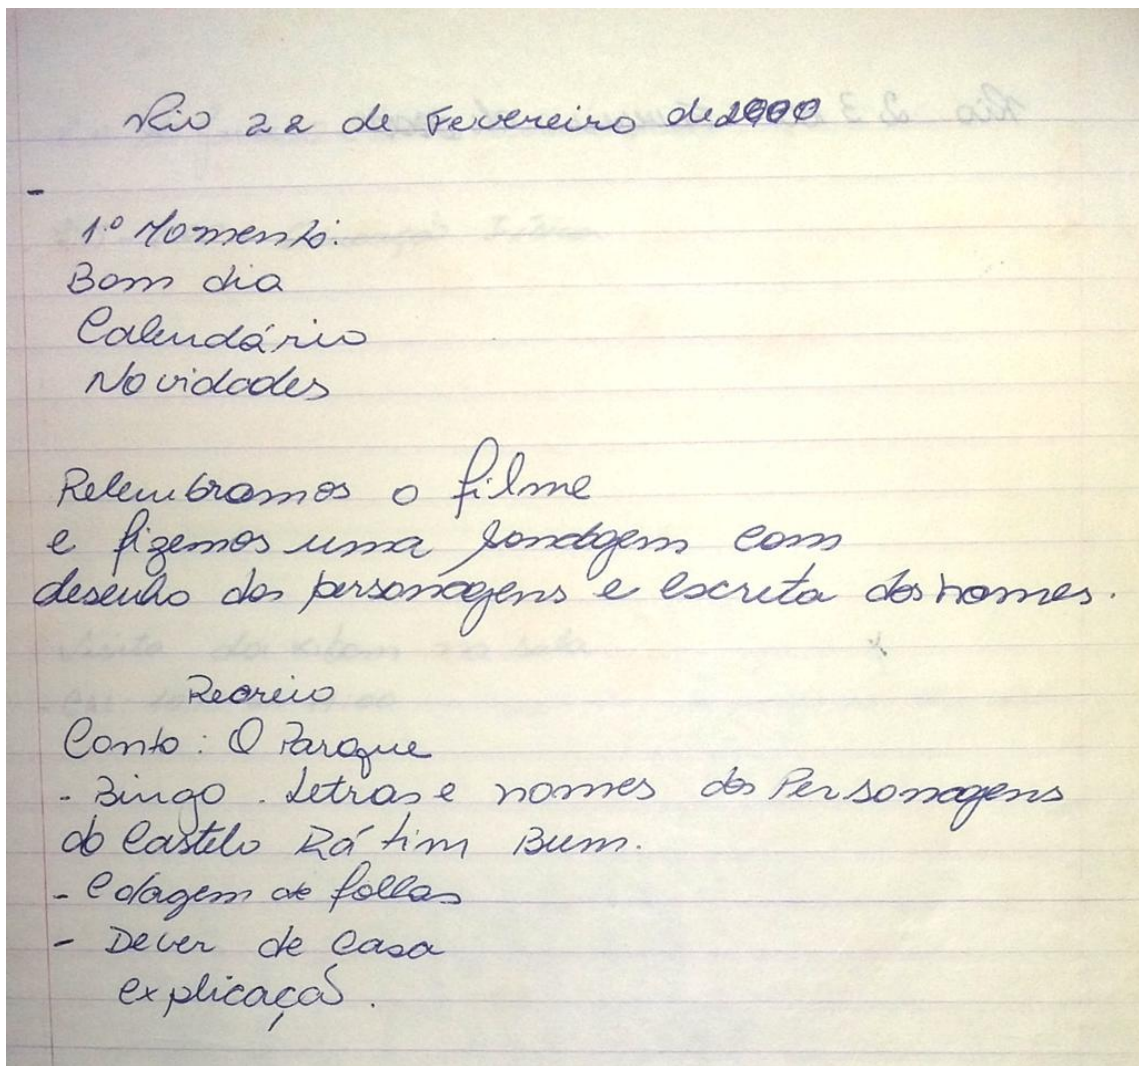 Rio 22 de Fevereiro de 2000
-
1º Momento:
Bom dia
Calendário
Novidades
Relembramos o filme
e fizemos uma sondagem com
desenho dos personagens e escrita dos nomes.
Recreio
Conto: O Parque
- Bingo. Letras e nomes dos Personagens
do Castelo Rá tim Bum.
- Colagem de folhas
- Dever de Casa
explicação.